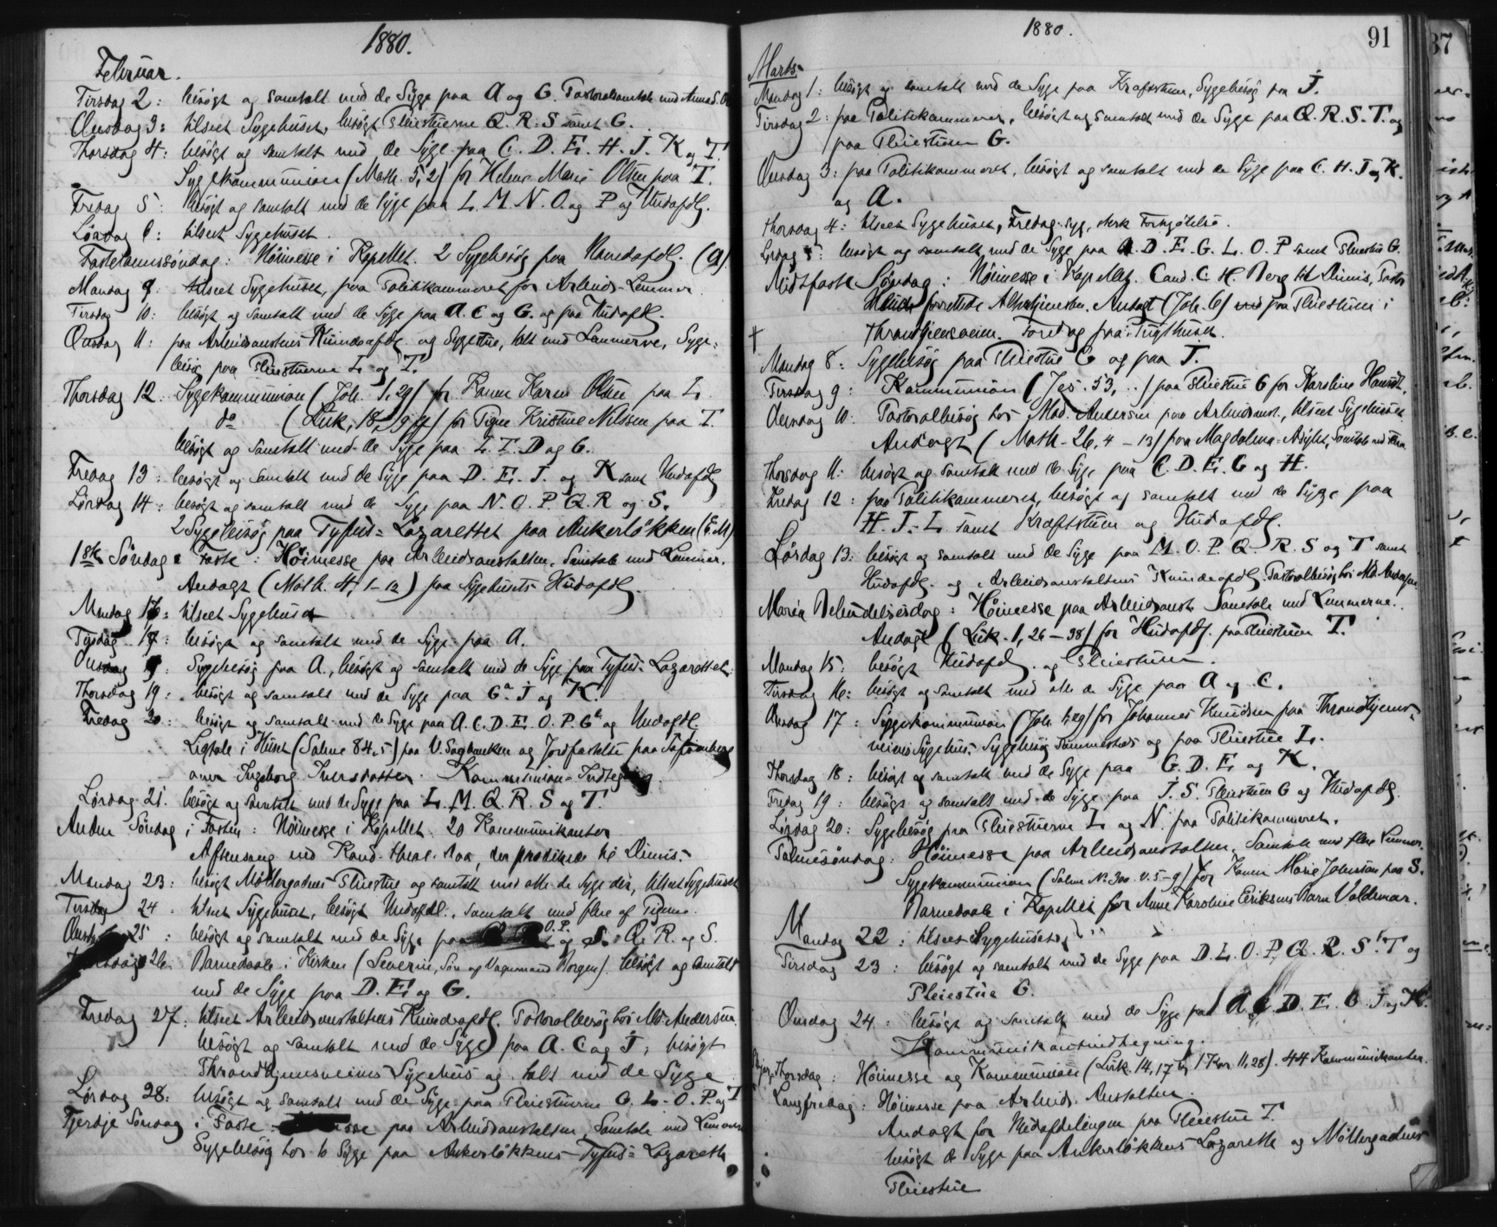 1880.
Februar.
Tirsdag 2: besøgt og samtalt med de Syge paa A og G. Pastoralsamtale med
Onsdag 3: tilseet Sygehuset, besøgt Pleiestuerne Q. R. S samt G.
Thorsdag 4: besøgt og samtalt med de Syge paa C. D. E. H. J. K og T.
Sygekommunion (Math. 5, 2) for Helene Marie Olsen paa T.
Fredag 5: besøgt og samtalt med de Syge paa L. M. N. O. og P og Hudafdlg.
Lørdag 6: tilseet Sygehuset.
Fastelavnssøndag: Høimesse i Kapellet. 2 Sygebesøg paa Mandsafdlg. (a)
Mandag 9. tilseet Sygehuset, paa Politikammeret for Arbeids-Lemmer.
Tirsdag 10: besøgt og samtalt med de Syge paa A. C og G. og paa Hudafdlg.
Onsdag 11: paa Arbeidsanstaltens Kvindeafdlg. og Sygestue, talt med Lemmerne, Syge-
besøg paa Pleiestuerne L. og T.
Thorsdag 12. Sygekommunion (Joh. 1, 29) for Karen Olsen paa L.
do (Luk. 18, ) for Pigen Kristine Nilssen paa T.
besøgt og samtalt med de Syge paa L. T. D og G.
Fredag 13: besøgt og samtalt med de Syge paa D. E. J. og K samt Hudafdlg
Lørdag 14: besøgt og samtalt med de Syge paa N. O. P. Q. R og S.
2 Sygebesøg paa Tyfus-Lazarettet paa Ankerløkken (E. M)
1ste Søndag i Faste: Høimesse paa Arbeidsanstalten, Samtale med Lemmer.
Andagt (Math. 4, 1-11) paa Sygehusets Hudafdlg.
Mandag 16: tilseet Sygehuset
Tirsdag 17: besøgt og samtalt med de Syge paa A.
Onsdag : Sygebesøg paa A., besøgt og samtalt med de Syge paa Tyfus-Lazarettet.
Thorsdag 19: besøgt og samtalt med de Syge paa Ga J og K
Fredag 20: besøgt og samtalt med de Syge paa A. C. D. E. O. P. Ga og Hudafdlg
Ligtale i Huset (Salme 84, 5) paa V. Sagbanken og Jordfæstelse paa
over Ingeborg Iversdatter. Kommunion-Indtegning.
Lørdag 21. besøgt og samtalt med de Syge paa L. M. Q. R. S og T.
Anden Søndag i Fasten: Høimesse i Kapellet. 20 Kommunikanter
Aftensang ved Kand. theol. , der prædikede til Dimis.
Mandag 23: besøgt Møllergadens Pleiestue og samtalt med alle de Syge der, tilseet Sygehuset
Tirsdag 24. tilseet Sygehuset, besøgt Hudafdl., Samtalt med flere af Pigerne.
Onsdag 25: besøgt og samtalt med de Syge paa O. P. og Q. R. og S.
Thorsdag 26. Barnedaab i Kirken (Severin, Søn af Vognmand Borgen). besøgt og samtalt
med de Syge paa D. E. og G.
Fredag 27: tilseet Arbeidsanstaltens Kvindeafdlg. Pastoralbesøg hos Md. Andersen.
besøgt og samtalt med de Syge paa A. C og J, besøgt
Throndhjemsveiens Sygehus og talt med de Syge
Lørdag 28: besøgt og samtalt med de Syge paa Pleiestuerne G. L. O. P og T
Tredje Søndag i Faste: paa Arbeidsanstalten, Samtale med Lemmer
Sygebesøg hos 6 Syge paa Ankerløkkens Tyfus-Lazareth
1880.
91
37
Marts
Mandag 1: besøgt og samtalt med de Syge paa Kræftstuen, Sygebesøg paa J.
Tirsdag 2: paa Politikammeret, besøgt og samtalt med de Syge paa Q. R. S. T. og
paa Pleiestuen G.
Onsdag 3: paa Politikammeret, besøgt og samtalt med de Syge paa C. H. J og K.
og A.
Thorsdag 4: tilseet Sygehuset, Fredag: syg, sterk Forkjølelse.
Lørdag : besøgt og samtalt med de Syge paa A D. E. G. L. O. P samt Pleiestue G.
Midtfaste Søndag: Høimesse i Kapellet. Cand. C. H. Berg til Dimis, Pastor
forrettede Altertjenesten. Andagt (Joh. 6) paa Pleiestuen i
Throndhjemsveien. Foredrag paa Tugthuset.
Mandag 8: Sygebesøg paa Pleiestue G og paa J.
Tirsdag 9: Kommunion (Jes. 53, ..) paa Pleiestue G for Karoline
Onsdag 10. Pastoralbesøg hos Mad. Andersen paa Arbeidsanst., tilseet Sygehuset
Andagt (Math. 26, 4-13) paa Magdalena-Asylet, Samtale med
Thorsdag 11: besøgt og samtalt med de Syge paa C. D. E. G og H.
Fredag 12: paa Politikammeret, besøgt og samtalt med de Syge paa
H. J. L. samt Kræftstuen og Hudafdlg.
Lørdag 13: besøgt og samtalt med de Syge paa M. O. P. Q. R. S og T samt
Hudafdlg. og Arbeidsanstaltens Kvindeafdlg. Pastoralbesøg hos Md. Andersen
Maria Bebudelsesdag: Høimesse paa Arbeidsanst. Samtale med Lemmerne.
Andagt (Luk. 1, 26-38) for Hudafdlg. paa Pleiestuen T.
Mandag 15: besøgt Hudafdlg. og Pleiestuen.
Tirsdag 16: besøgt og samtalt med alle de Syge paa A og C.
Onsdag 17: Sygekommunion (Joh. 1, 29) for Johannes Knudsen paa Throndhjems-
veiens Sygehus. Sygebesøg sammesteds og paa Pleiestue L.
Thorsdag 18: besøgt og samtalt med de Syge paa G. D. E. og K.
Fredag 19: besøgt og samtalt med de Syge paa J. S. Pleiestuen G og Hudafdlg.
Lørdag 20: Sygebesøg paa Pleiestuerne L og N. paa Politikammeret.
Palmesøndag: Høimesse paa Arbeidsanstalten. Samtale med flere Lemmer.
Sygekommunion (Salme No 300. V. 5-9) for Karen Marie Johnsen paa S.
Barnedaab i Kapellet for Anne Karoline Eriksens Barn Valdemar.
Mandag 22: tilseet Sygehuset.
Tirsdag 23: besøgt og samtalt med de Syge paa D. L. O. P. Q. R. S. T og
Pleiestue G.
Onsdag 24: besøgt og samtalt med de Syge paa A C D. E. G J og K.
Kommunikantindtegning.
Skjær-Thorsdag: Høimesse og Kommunion (Luk. 14, 17 og 1 Kor. 11, 28). 44 Kommunikanter.
Langfredag: Høimesse paa Arbeids-Anstalten.
Andagt for Hudafdelingen paa Pleiestue T.
besøgt de Syge paa Ankerløkkens Lazareth og Møllergadens
Pleiestue